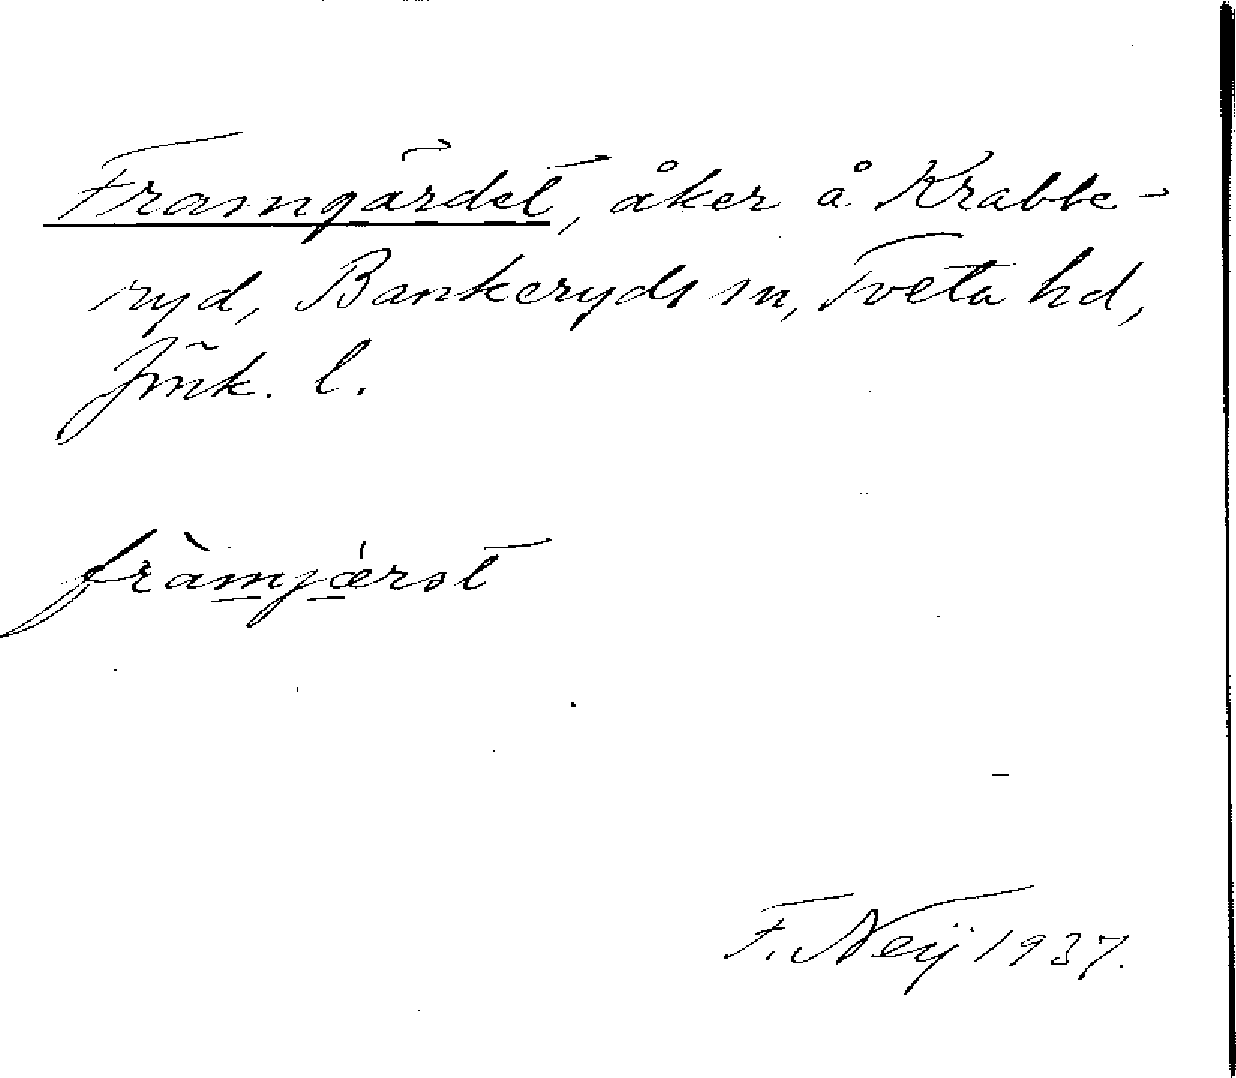 Framgärdet, åker å Krabbe-
ryd, Bankeryds sn, Tveta hd,
Jmk. l.
fràmjǽrdt
F. Neij 1937.